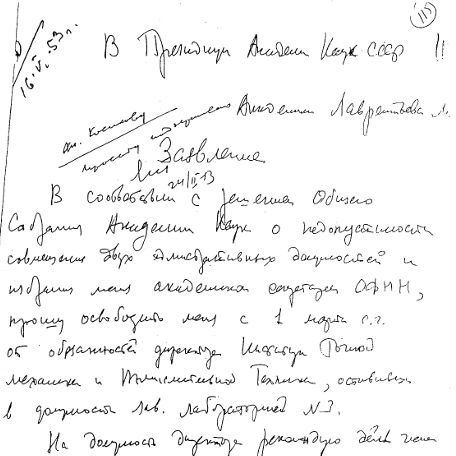 115
16.V.53г.
В Президиум Академии Наук СССР
Академика Лаврентьева М.
Заявление
В соответствии с решением Общего
Собрания Академии Наук о недопустимости
совмещения двух административных должностей и
избрания меня академиком секретарем ОФМН,
прошу освободить меня с 1 марта с.г.
от обязанностей директора Института Точной
механики и Вычислительной Техники, оставив
в должности зав. лабораторией N 1.
На должность директора рекомендую действ. члена